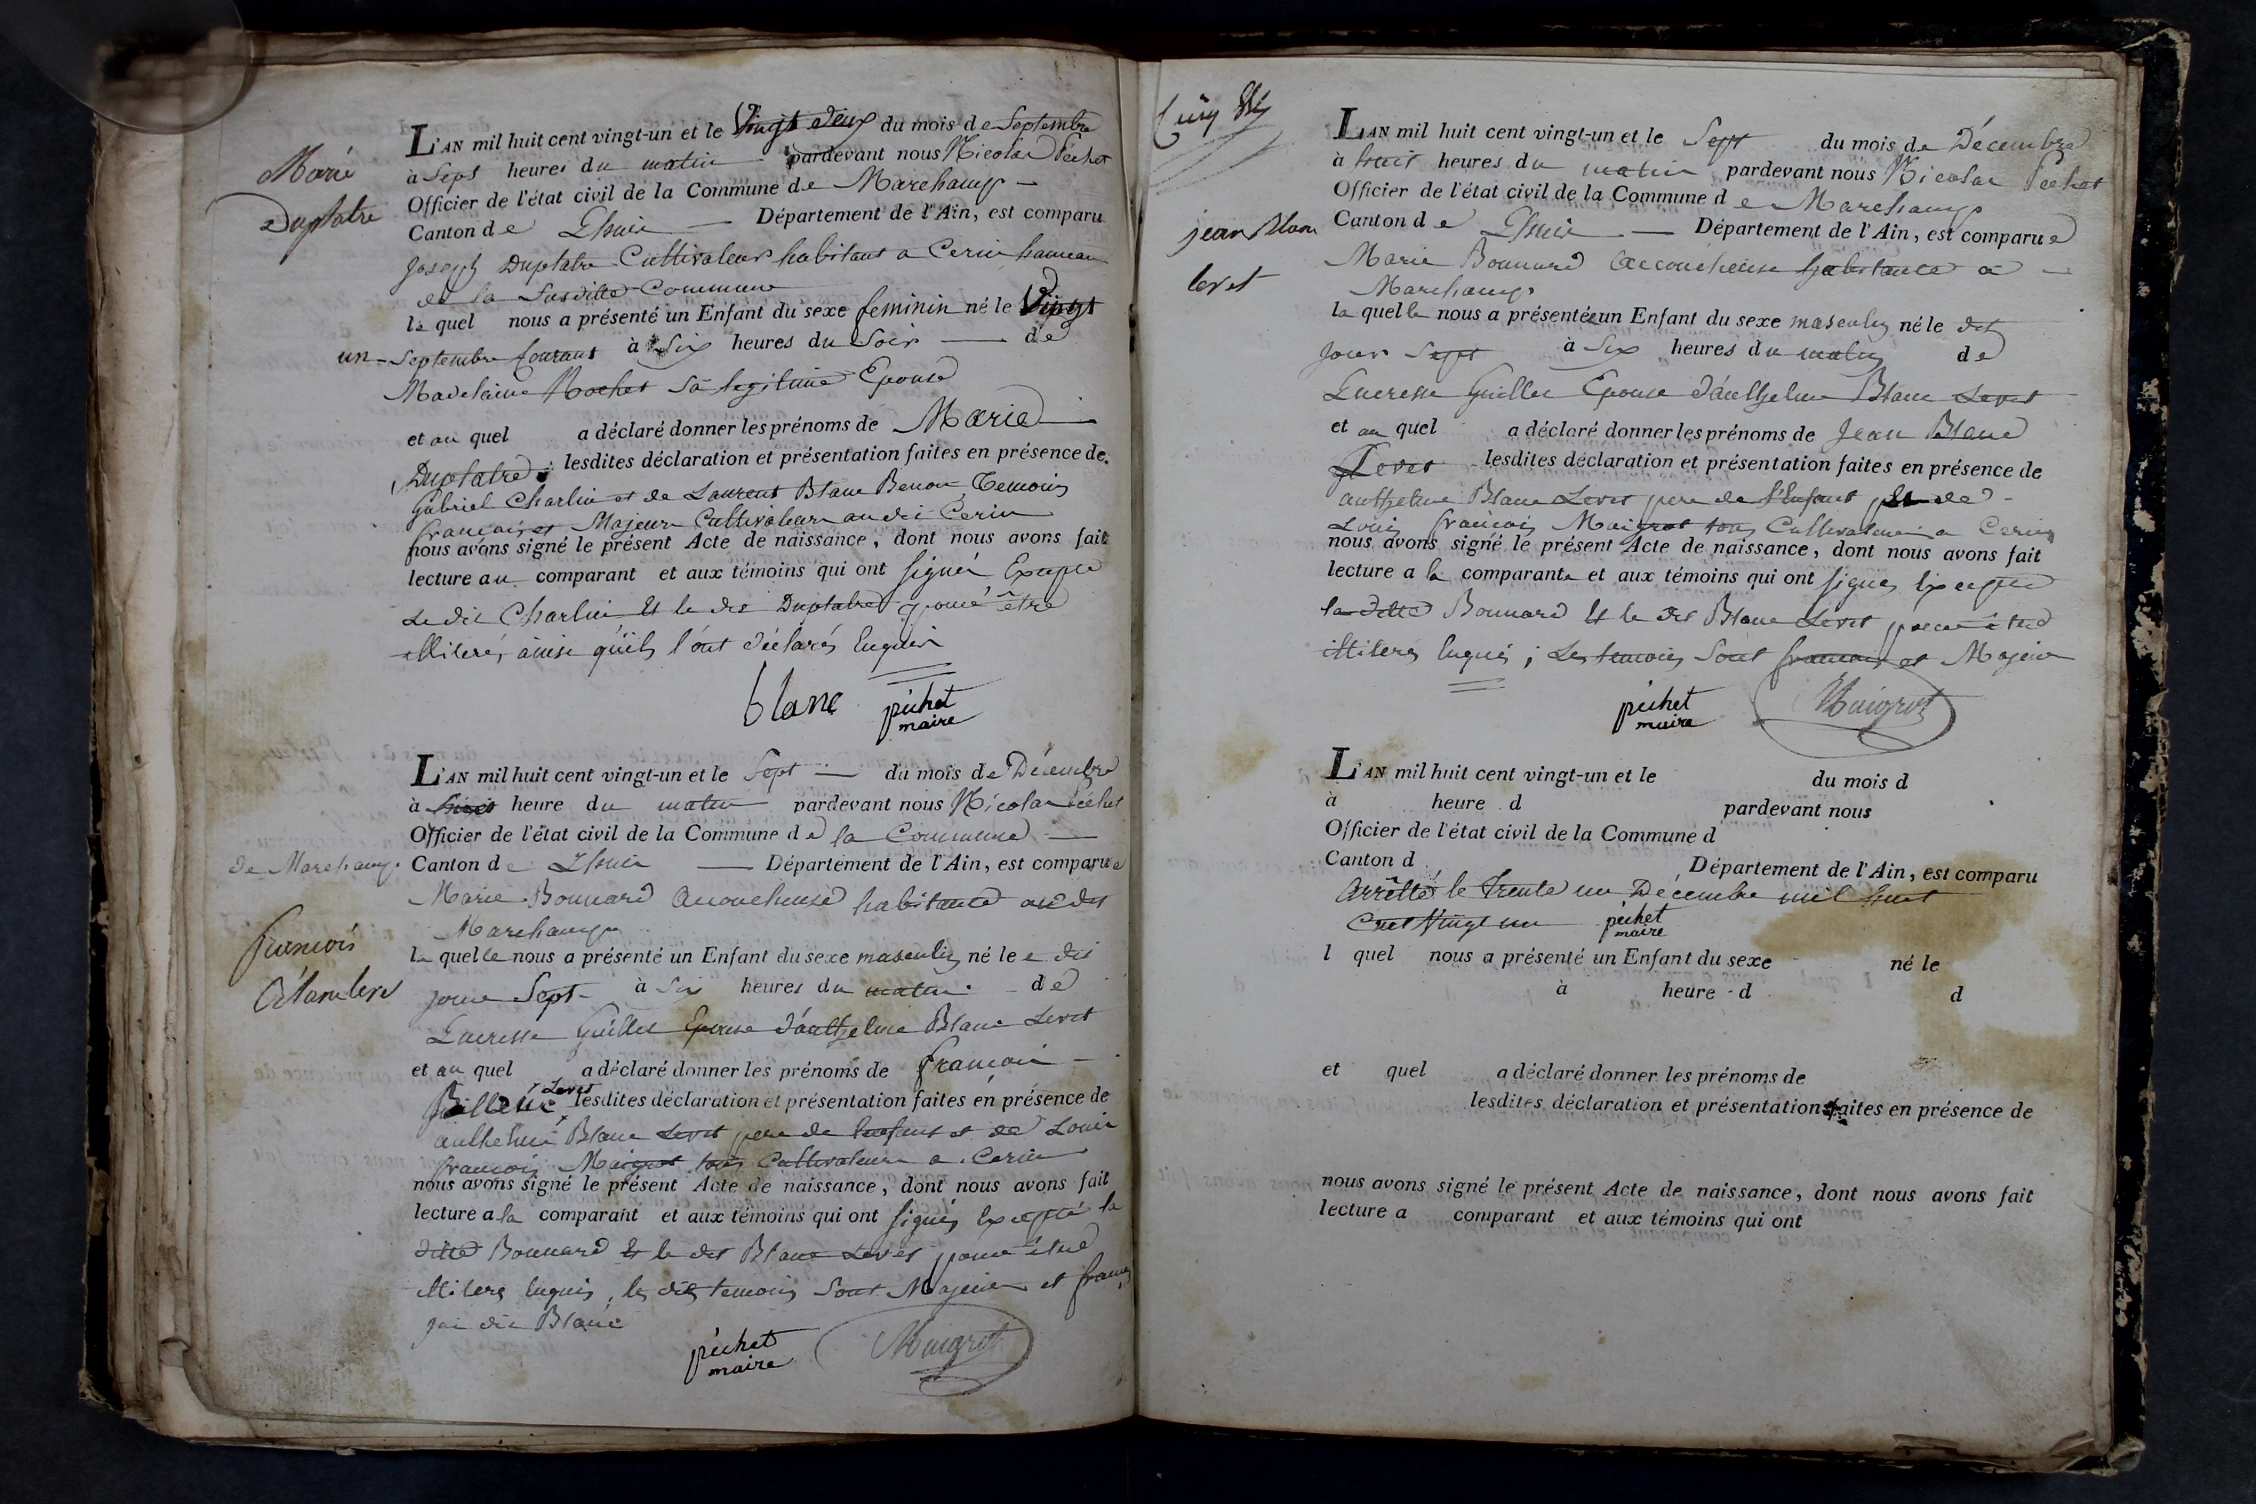 Marie
Duplatre
L'AN mil huit cent vingt-un et le Vingt deux du mois de Septembre
à Sept heures du matin pardevant nous Nicolas Péchet
Officier de l'état civil de la Commune de Marchamp
Canton de Lhuis Département de l'Ain, est comparu
Joseph Duplatre Cultivateur habitant a Cerin hameau
de la Susditte Commune
le quel nous a présenté un Enfant du sexe feminin né le Vingt
un Septembre Courant à Six heures du Soir de
Madelaine Rochet Sa legitime Epouse
et au quel a déclaré donner les prénoms de Marie
Duplatre lesdites déclaration et présentation faites en présence de
Gabriel Charlin et de Laurent Blanc Benon Temoins
francais et Majeurs Cultivateurs au dit Cerin
nous avons signé le présent Acte de naissance, dont nous avons fait
lecture au comparant et aux témoins qui ont signés Excepté
Le dit Charlin et le dit Duplatre pour être
illiteré, ainsi qu'ils l'ont déclarés Enquis
blanc péchet
maire
L'AN mil huit cent vingt-un et le Sept du mois de Décembre
à heure du matin pardevant nous Nicolas Péchet
Officier de l'état civil de la Commune de la Commune
de Marchamp Canton de Lhuis Département de l'Ain, est comparue
Marie Bonnard accoucheuse habitante au dit
Marchamp
la quelle nous a présenté un Enfant du sexe masculin né le e dit
françois
jour Sept à Six heures du matin de
Lucresse Guillet Epouse d'anthelme Blanc Levet
et au quel a déclaré donner les prénoms de francois
Levet lesdites déclaration et présentation faites en présence de
anthelme Blanc Levet pere de lenfant et de Louis
francois Maigrot tous Cultivateurs a Cerin
nous avons signé le présent Acte de naissance, dont nous avons fait
lecture a la comparant et aux témoins qui ont signés Excepté la
ditte Bonnard et le dit Blanc Levet pour être
illiteré Enquis, les dits temoins Sont Majeurs et francais
Blanc
péchet Maigrot
maire
jean Blanc
levet
L'AN mil huit cent vingt-un et le Sept du mois de Décembre
à huit heures du matin pardevant nous Nicolas Péchet
Officier de l'état civil de la Commune de Marchamp
Canton de Lhuis Département de l'Ain, est comparue
Marie Bonnard accoucheuse habitante à
Marchamp
la quelle nous a présentée un Enfant du sexe masculin né le dit
jour Sept à Six heures du matin de
Lucresse Guillet Epouse d'anthelme Blanc Levet
et au quel a déclaré donner les prénoms de Jean Blanc
Levet lesdites déclaration et présentation faites en présence de
anthelme Blanc Levet pere de l'Enfant et de
Louis francois Maigrot tous Cultivateurs a Cerin
nous avons signé le présent Acte de naissance, dont nous avons fait
lecture a la comparante et aux témoins qui ont signés Excepté
la ditte Bonnard et le dit Blanc Levet pour être
illiterés Enquis ; Les temoins Sont francais et Majeur
péchet Maigrot
maire
L'AN mil huit cent vingt-un et le du mois d
à heure d pardevant nous
Officier de l'état civil de la Commune d
Canton d Département de l'Ain, est comparu
Arrêtté le trente un Décembre mil huit
Cent Vingt un péchet
maire
l quel nous a présenté un Enfant du sexe né le
à heure d d
et quel a déclaré donner les prénoms de
lesdites déclaration et présentation faites en présence de
nous avons signé le présent Acte de naissance, dont nous avons fait
lecture a comparant et aux témoins qui ont